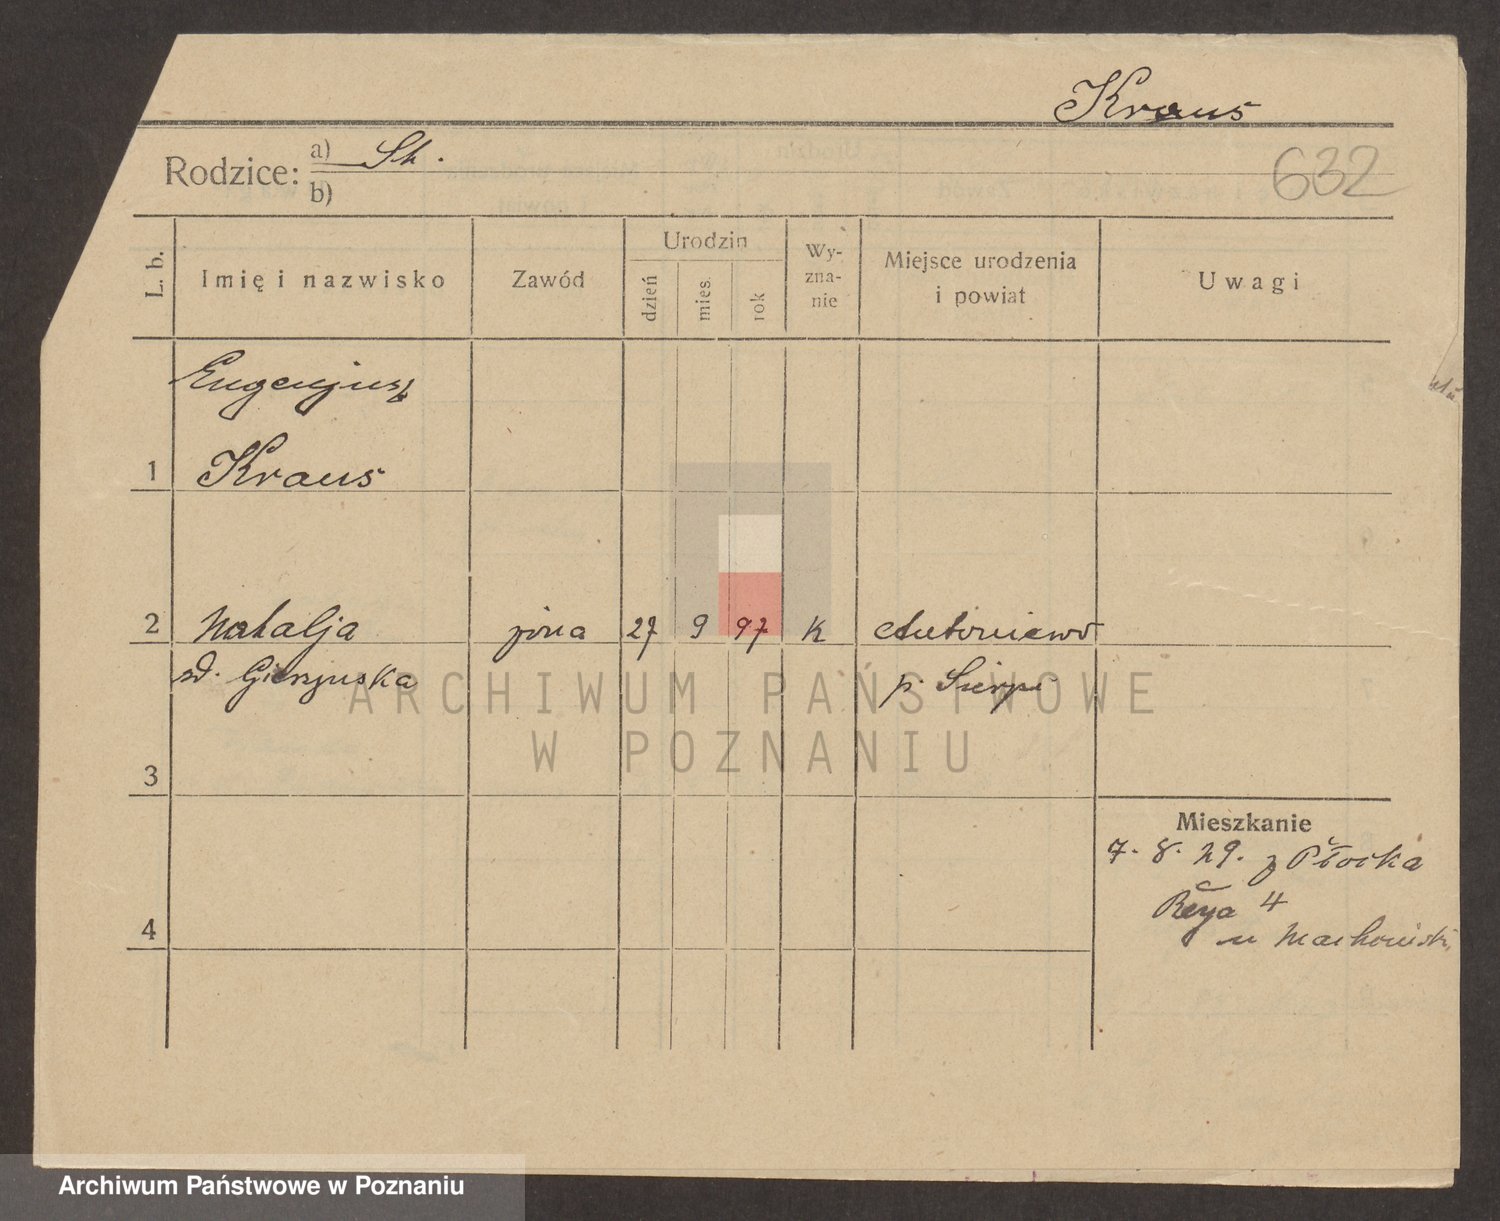 Kraus
Rodzice: a) Sk.
b)
632
L. b. Imię i nazwisko Zawód Urodzin dzień mies. rok Wy-zna-nie Miejsce urodzenia i powiat Uwagi
Eugenjusz
1 Kraus
2 Natalja żona 27 9 97 k Antoniewo
zd. p. Sierpc
ARCHIWUM PAŃSTWOWE
W POZNANIU
3
Mieszkanie
7. 8. 29. z Płocka
4 Reya 4
u
Archiwum Państwowe w Poznaniu